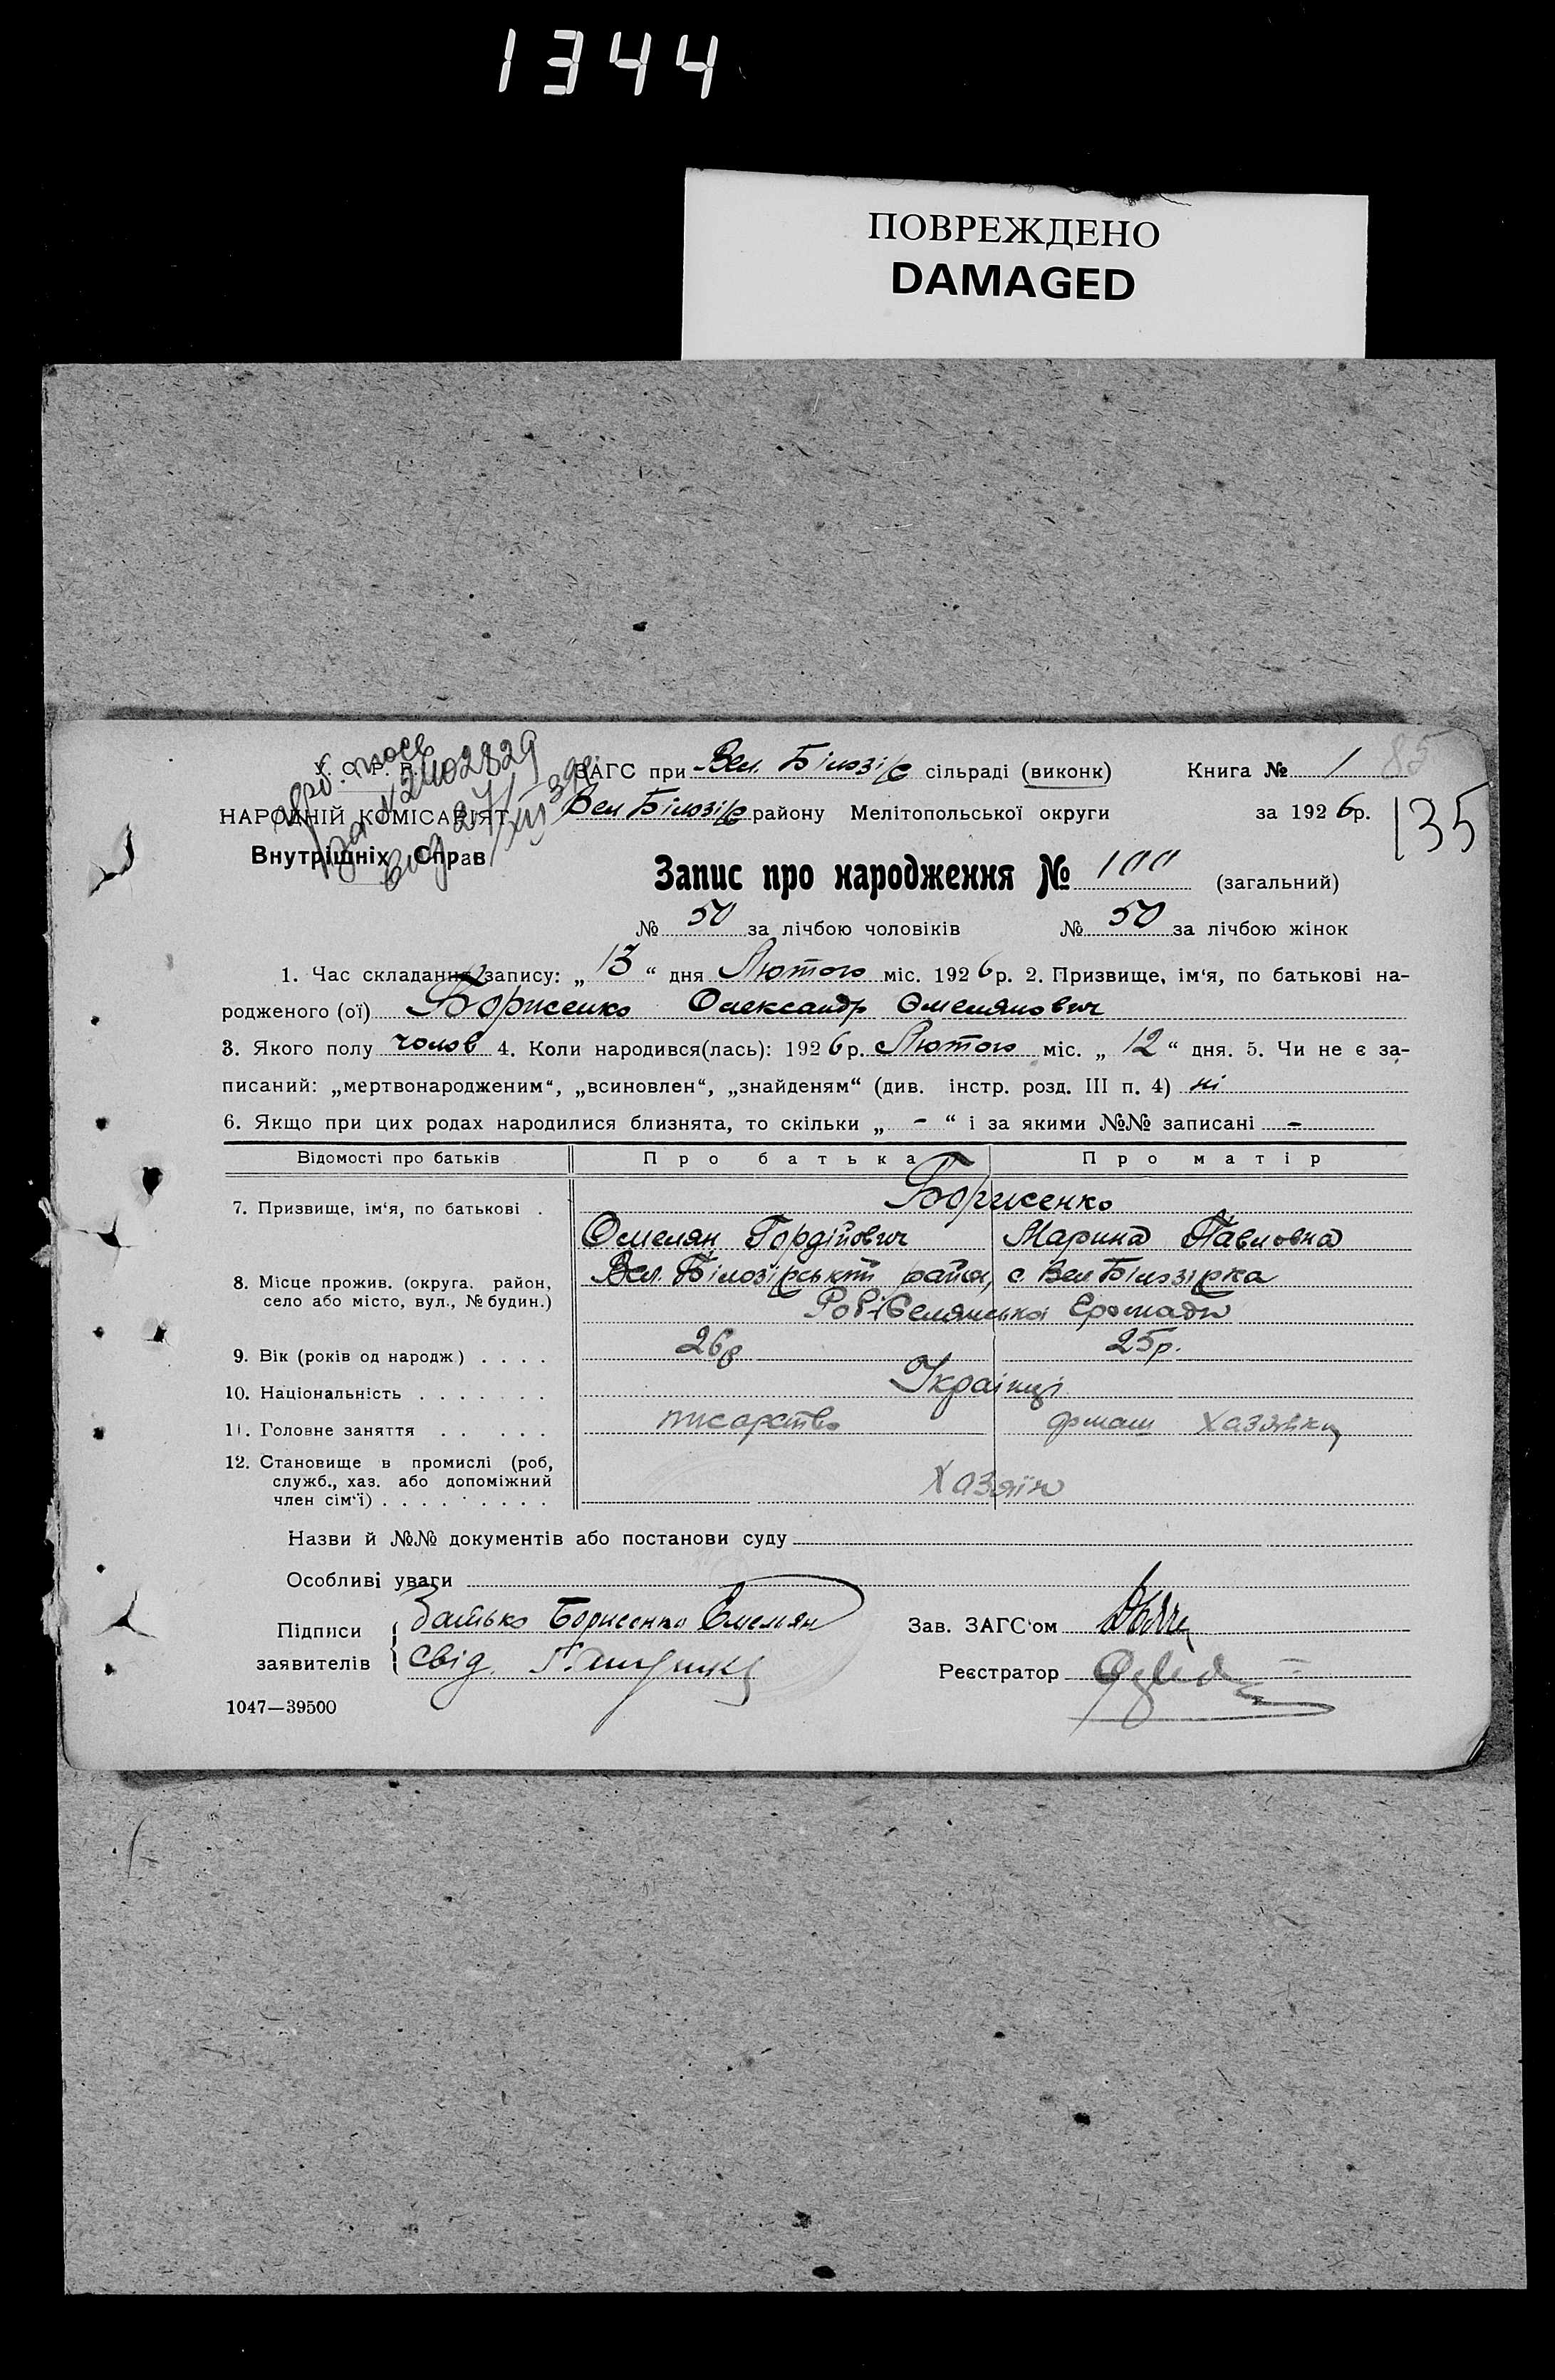 1344
ПОВРЕЖДЕНО
DAMAGED
У. С. Р. Р.
НАРОДНІЙ КОМІСАРІЯТ
Внутрішніх Справ
ЗАГС при Вел. Білозі сільраді (виконк) Книга № 1 85
Вел Білозі району Мелітопольської округи за 1926р. 135
Запис про народження № 100 (загальний)
№ 50 за лічбою чоловіків № 50 за лічбою жінок
1. Час складання запису: „ 13 “ дня Лютого міс. 1926р. 2. Призвище, ім‘я, по батькові на-
родженого (ої) Борисенко Олександр Омелянович
3. Якого полу чолов 4. Коли народився(лась): 1926р. Лютого міс. „ 12 “ дня. 5. Чи не є за-
писаний: „мертвонародженим“, „всиновлен“, „знайденям“ (див. інстр. розд. III п. 4) ні
6. Якщо при цих родах народилися близнята, то скільки „ - “ і за якими №№ записані -
Відомості про батьків Про батька Про матір
7. Призвище, ім‘я, по батькові . Борисенко
Омелян Гордійович Марина Павловна
8. Місце прожив. (округа. район, село або місто, вул., № будин.) Вел. Білозірський район, с. Вел Білозірка
Громади
9. Вік (років од народж) . . . . 26р 25р.
10. Національність . . . . . . . Українці
11. Головне заняття . . . . . писарство хазяйка
12. Становище в промислі (роб, служб., хаз. або допоміжний член сім‘ї) . . . . . . . . . Хазяїн
Назви й №№ документів або постанови суду
Особливі уваги
Підписи заявителів
Батько Борисенко Омелян
Свід.
Зав. ЗАГС‘ом
Реєстратор
1047—39500